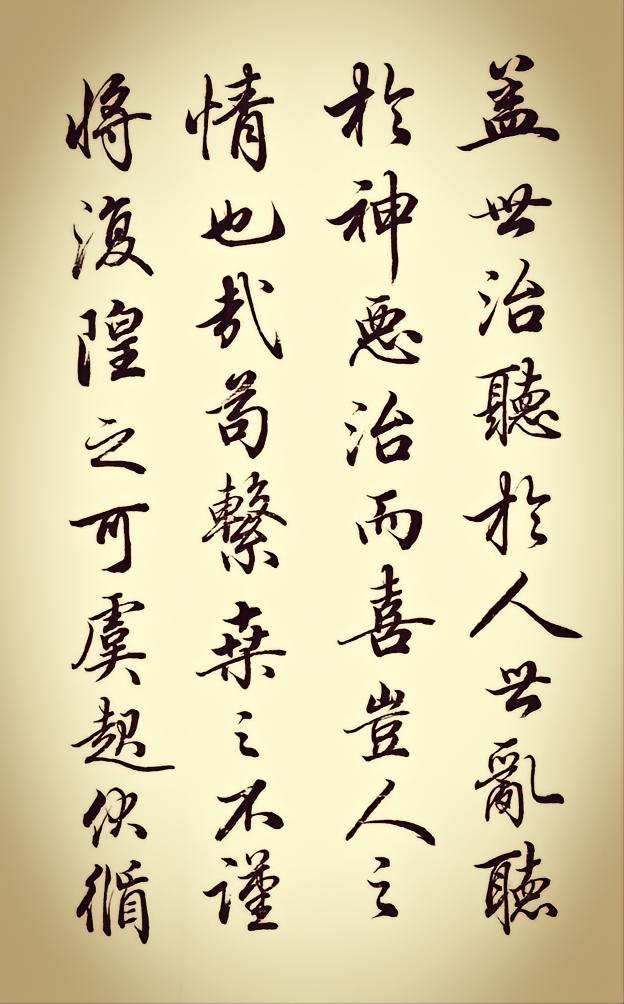 盖世治聽於人世亂聽
於神悪治而喜豈人之
情也哉苟繫桒之不謹
将復隍之可虞起伏循